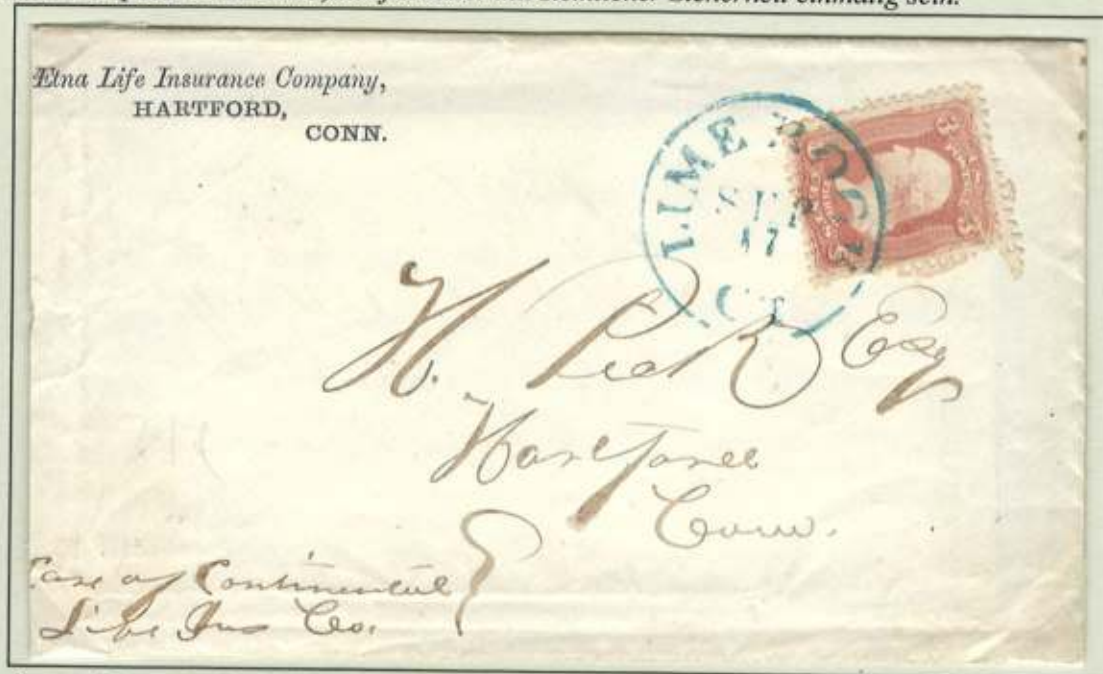 Sicherheit einmalig sein.
Ætna Life Insurance Company,
HARTFORD,
CONN.
LIME ROCK
SEP
17
CT.
3 3
H. Peck Esq
Hartford
Conn.
Care of Continental
Life Ins Co.